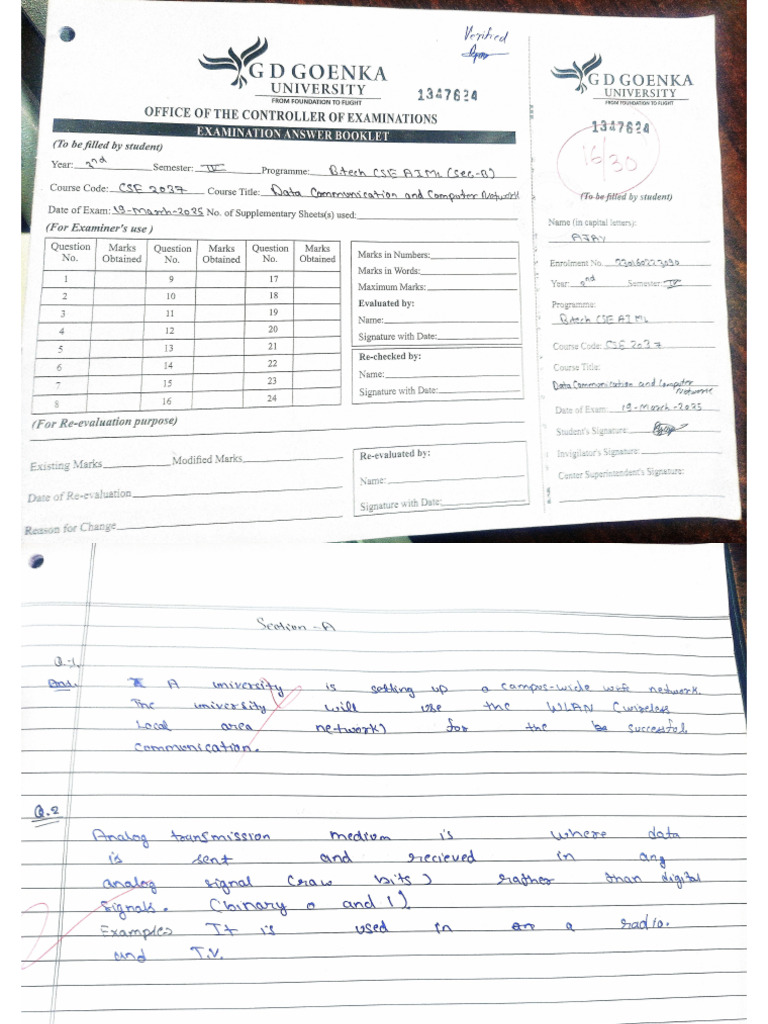 Verified
G D GOENKA
UNIVERSITY
FROM FOUNDATION TO FLIGHT
1347624
OFFICE OF THE CONTROLLER OF EXAMINATIONS
EXAMINATION ANSWER BOOKLET
(To be filled by student)
Year: 2nd Semester: IV Programme: Btech CSE AIML (Sec-B)
Course Code: CSE 2037 Course Title: Data Communication and Computer Network
Date of Exam: 19-March-2025 No. of Supplementary Sheets(s) used:
(For Examiner's use )
Question No. Marks Obtained Question No. Marks Obtained Question No. Marks Obtained
1 9 17
2 10 18
3 11 19
4 12 20
5 13 21
6 14 22
7 15 23
8 16 24
Marks in Numbers:
Marks in Words:
Maximum Marks:
Evaluated by:
Name:
Signature with Date:
Re-checked by:
Name:
Signature with Date:
(For Re-evaluation purpose)
Existing Marks Modified Marks
Date of Re-evaluation
Reason for Change
Re-evaluated by:
Name:
Signature with Date:
G D GOENKA
UNIVERSITY
FROM FOUNDATION TO FLIGHT
1347624
16/30
(To be filled by student)
Name (in capital letters):
AJAY
Enrolment No. 230160223090
Year: 2nd Semester: IV
Programme:
Btech CSE AIML
Course Code: CSE 2037
Course Title:
Data Communication and Computer
Network
Date of Exam: 19-March-2025
Student's Signature:
Invigilator's Signature:
Center Superintendent's Signature:
Section -A
Q.1
Ans. A university is setting up a campus-wide wifi network.
The university will use the WLAN (wireless
Local area network) for the be successful
communication.
Q.2
Analog transmission medium is where data
is sent and recieved in any
analog signal (raw bits) rather than digital
signals. (binary 0 and 1).
Examples It is used in a radio.
and T.V.